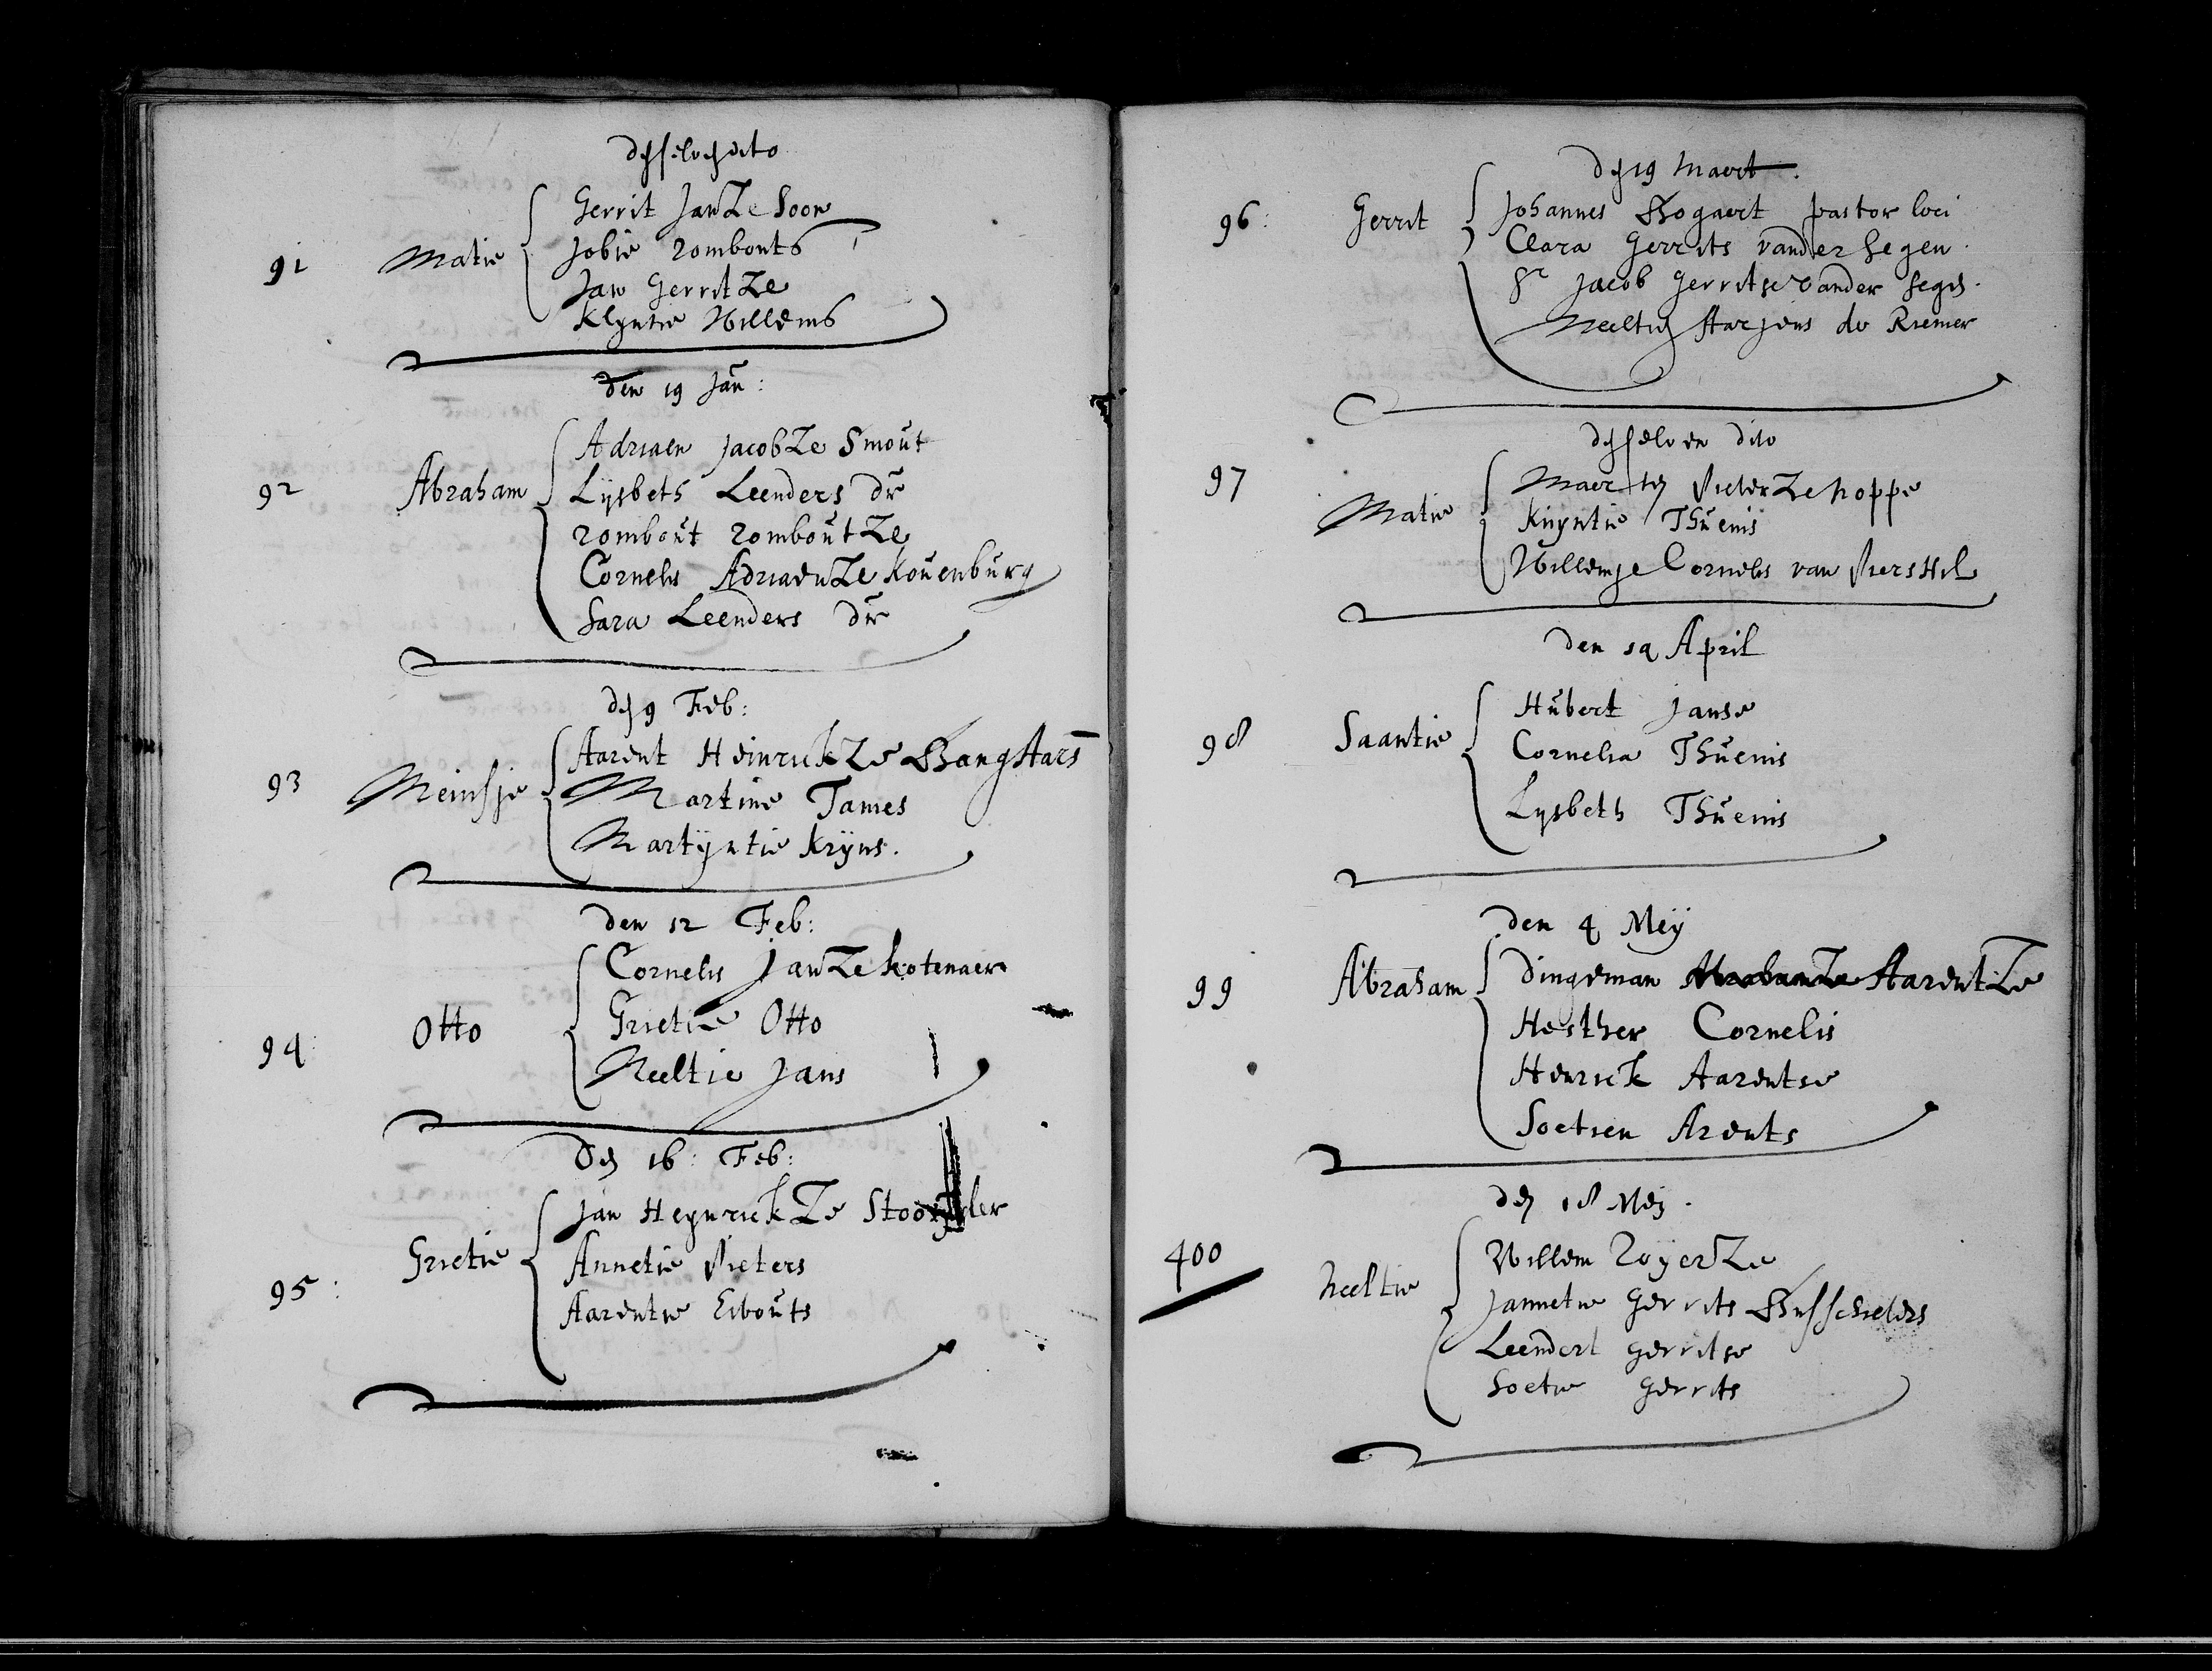 desselve dito
91 Matie Gerrit JanZe Soon
Jobie Rombouts
Jan GerritZe
Klyntie Willems
den 19 Jan:
92 Abraham Adriaen JacobZe Smout
Lysbeth Leenders dr
Rombout RomboutZe
Cornelis AdriaenZe Kouenburg
Sara Leenders dr
den 9 Feb:
93 Meinsje Aarent HeinrickZe
Martine Tames
Martyntie Kryns.
den 12 Feb:
94: Otto Cornelis JanZe Kotenaer
Grietie Otto
Neeltie Jans
den 16: Feb:
95: Grietie Jan HeynrickZe
Annetie Pieters
Aarentie Ewouts
den 19 Maert.
96: Gerrit Johannes Bogaert pastor loci
Clara Gerrits vander hegen.
Sr Jacob Gerritse vander hegen.
Neeltien Harjens de Riemer
desselven dito
97 Matie Maerten PieterZe hoppe
Knyntie Thuenis
Willemje Cornelis van Piershil
den 19 April
98 Saantie Hubert Janse
Cornelia Thuenis
Lysbeth Thuenis
den 4 Mey
99 Abraham Dingeman AarentZe
Hesther Cornelis
Henrick Aarentse
Soetien Arents
den 18 Mey.
400 Neeltie Willem RoyerZe
Jannetie Gerrits Busschieters
Leendert Gerritse
Soetie Gerrits